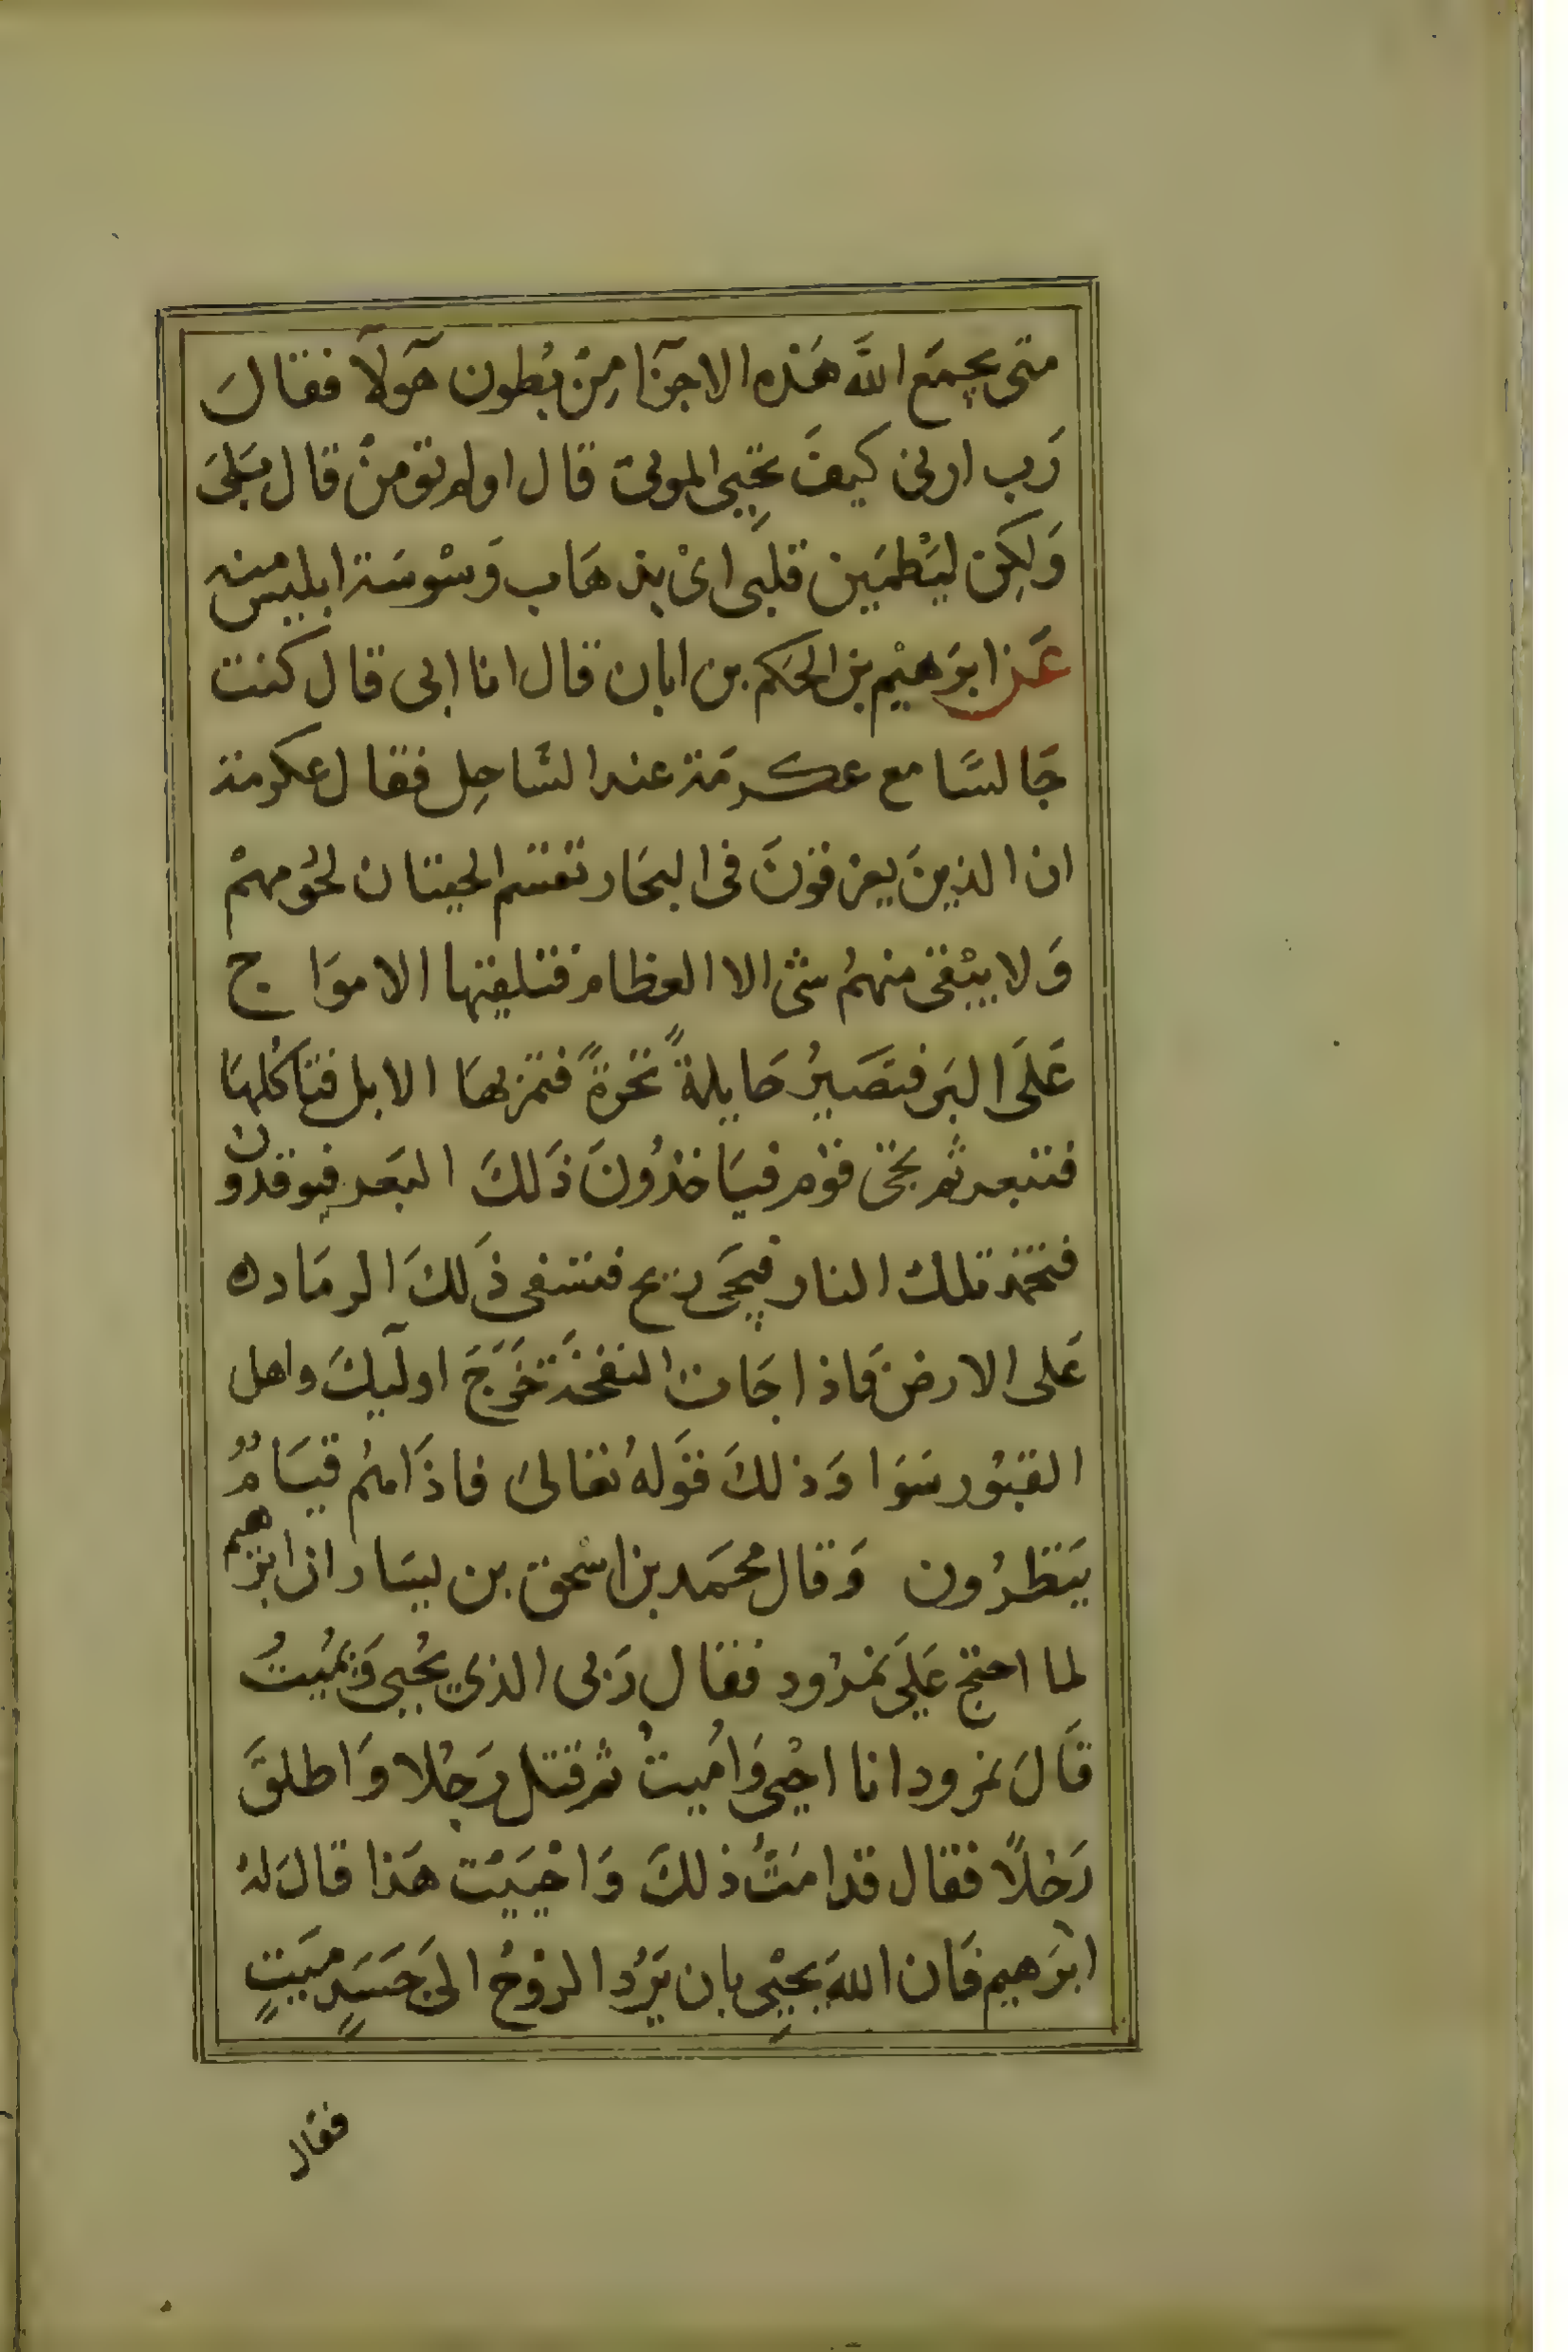 متى يجمَع اللَّه هَذه الاجزآ مِنْ بُطون هَولآ فقالَ
رَب ارنى كيفَ تحِيى الموتى قال اولم تومنْ قال بَلىَ
وَلكِن ليَطمَين قلبِى اىْ بذهَاب وَسْوسَة ابليس منه
عَن ابرَهيْم بن الحَكم بن ابان قال انا ابى قال كنت
جَالسًا مع عكرمَة عند السَّاحِل فقال عكرمة
ان الذينَ يغرقونَ فى البحَار تقتسم الحيتان لحُومهمْ
وَلا يبْقى منهمُ شئ الا العظام فتلقيها الامَواج
عَلَى البَر فتصَيرُ حَايلةً نخرةً فتمر بهَا الابل فتاكُلهَا
فتبعر ثم يجئ قوْم فيَاخذُونَ ذَلكَ البَعر فيوقدون
فتخمد تلك النار فيجَئ ريح فتسفى ذَلكَ الرمَاد ه
عَلى الارض فَاذا جَات النفخَة تخَرَجَ اولَيكَ واهل
القبُور سَوَا وَذلكَ قوَلهُ تعَالىَ فاذَا هُم قيَامٌ
يَنظرُون وَقال محمَد بن اسْحق بن يسَار ان ابرَهيم
لما احتج عَلَى نمرُود فقال رَبى الذى يُحْيى وَيمُيتُ
قَالَ نمرود انا احْيى وَامُيتُ ثم قتل رَجُلا وَاطلقَ
رَجُلاً فقال قد امَتُّ ذلكَ وَاحْيَيْت هَذا قالَ لهُ
ابْرَهيم فَان اللهَ يحْيِى بان يَرُد الروْحُ الىَ جَسَدٍ مَيتٍ
فقال